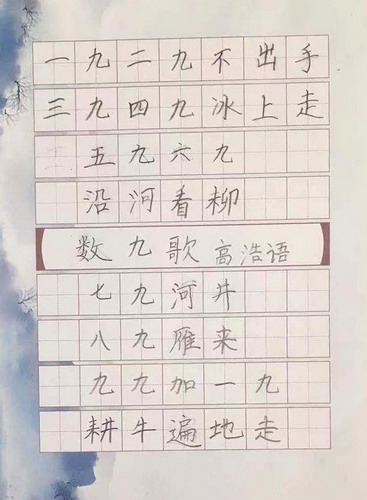 一九二九不出手
三九四九冰上走
五九六九
沿河看柳
数九歌 高浩语
七九河井
八九雁来
九九加一九
耕牛遍地走